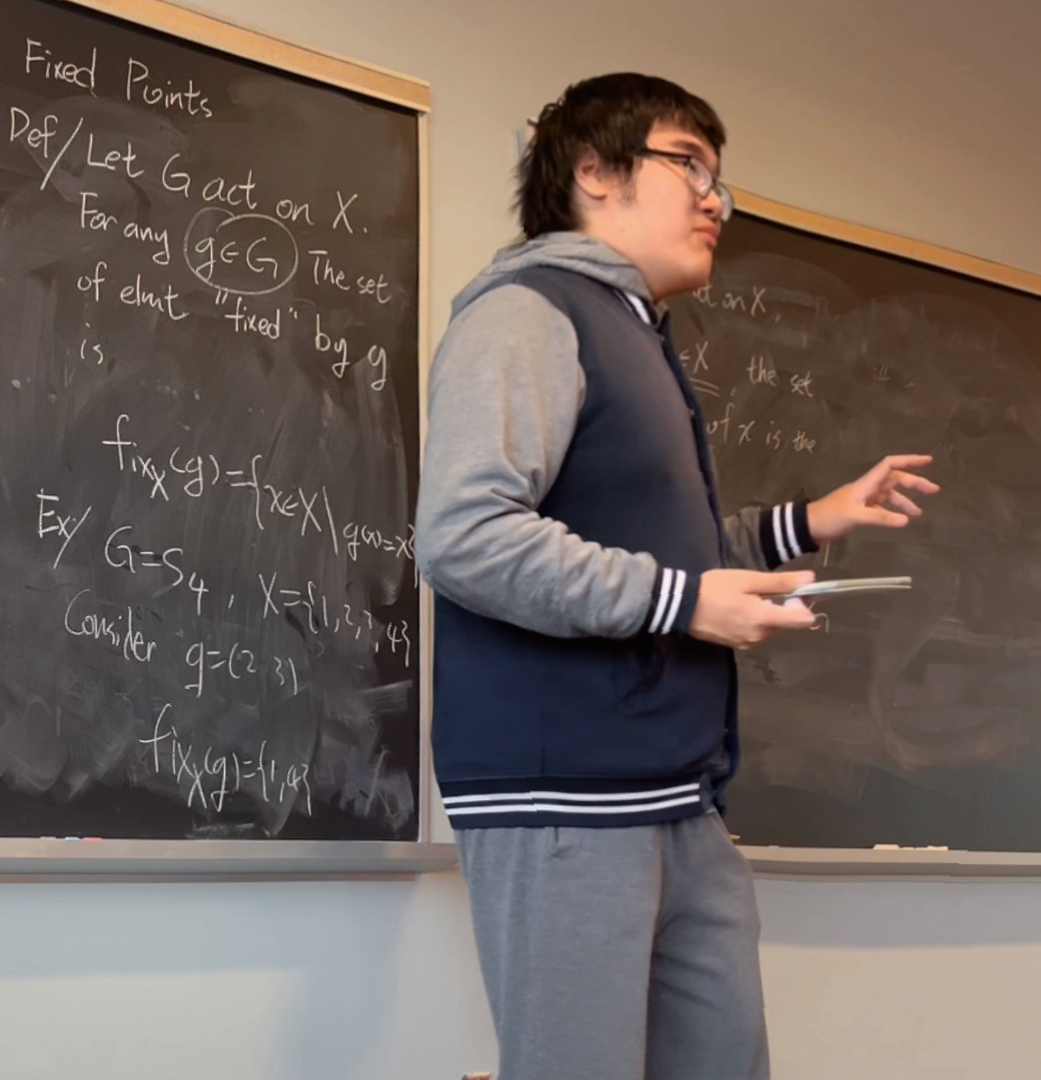 Fixed Points
Def/ Let G act on X.
For any g∈G The set
of elmt "fixed" by g
is
fix_X(g)={x∈X\g(x)=x}
Ex/ G=S_4, X={1,2,3,4}
Consider g=(2 3)
fix_X(g)={1,4}
on X,
∈X, the set
of x is the